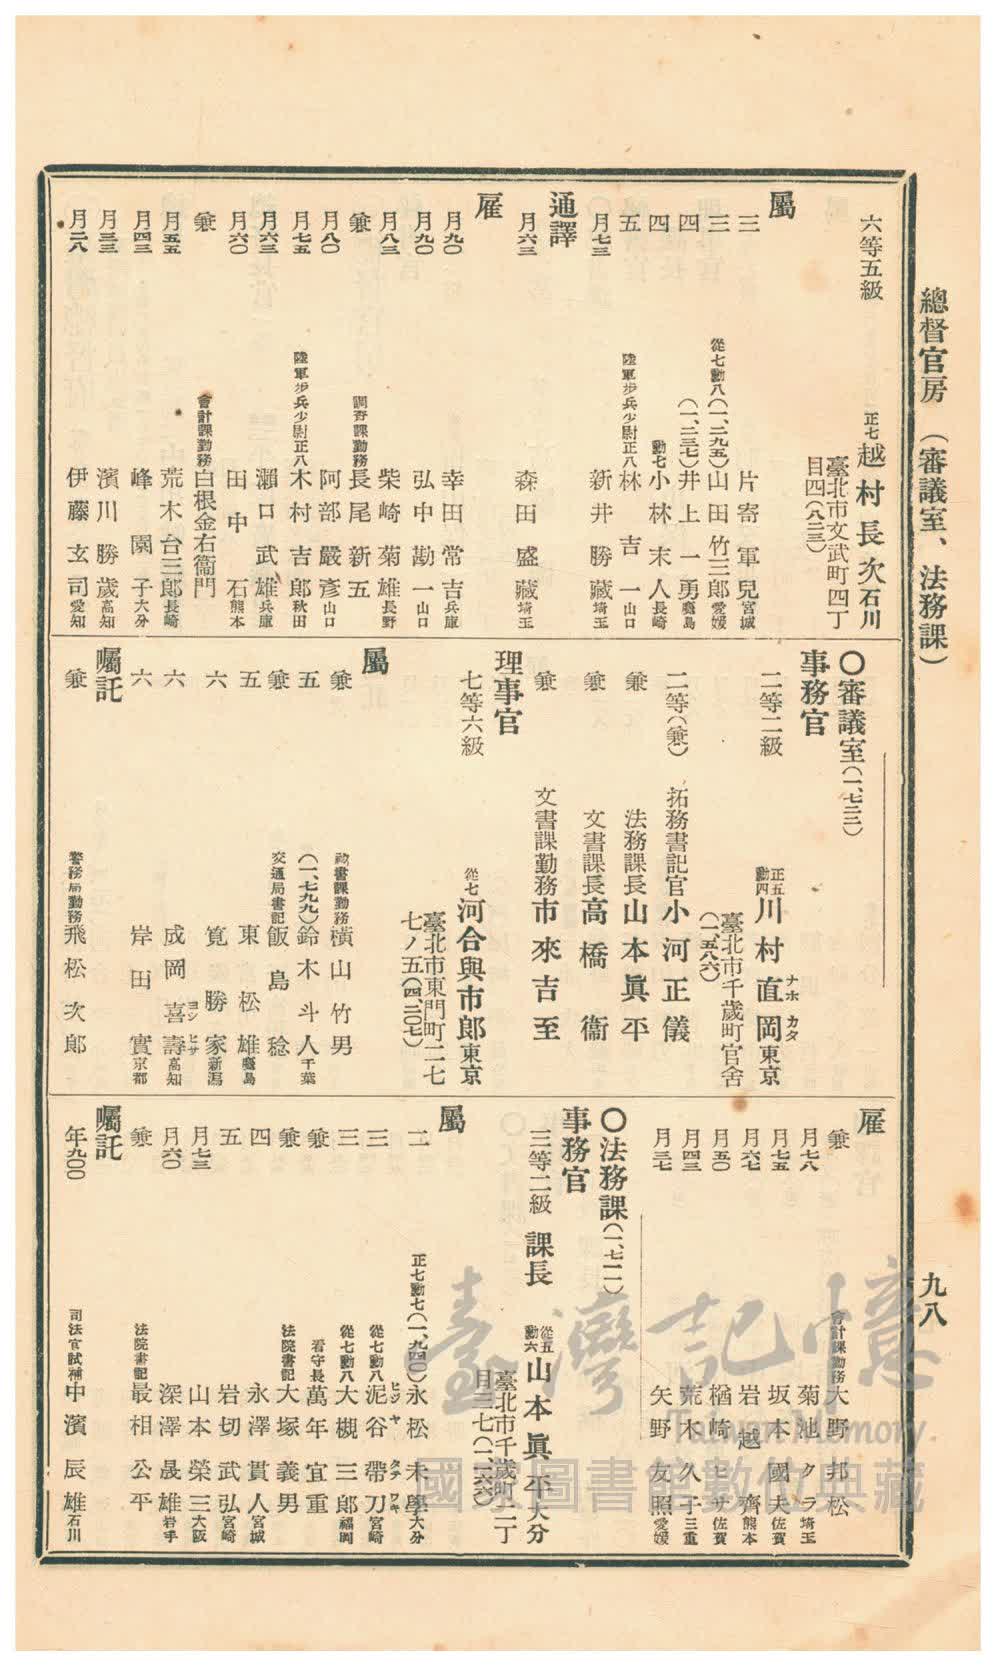 總督官房（審議室、法務課）
九八
六等五級 正七 越村長次 石川
臺北市文武町四丁
目四（八二三）
屬
三 片寄軍兒 宮城
三 從七勳八（一、二九五）山田竹三郎 愛媛
四 （一、二三七）井上一勇 廣島
四 勳七 小林末人 長崎
五 陸軍步兵少尉正八 林吉一 山口
月七三 新井勝藏 埼玉
通譯
月六三 森田盛藏 埼玉
雇
月九〇 幸田常吉 兵庫
月九〇 弘中勘一 山口
月八三 柴崎菊雄 長野
兼 調査課勤務 長尾新五
月八〇 阿部嚴彥 山口
月七五 陸軍步兵少尉正八 木村吉郎 秋田
月六三 瀨口武雄 兵庫
月六〇 田中石 熊本
兼 會計課勤務 白根金右衞門
月五五 荒木台三郎 長崎
月四三 峰園子 大分
月三三 濱川勝歲 高知
月二八 伊藤玄司 愛知
〇審議室（一、七三二）
事務官
二等二級 正五勳四 川村直岡 ナホカタ 東京
臺北市千歲町官舍
（一、五八六）
二等（兼） 拓務書記官 小河正儀
兼 法務課長 山本眞平
兼 文書課長 高橋衞
兼 文書課勤務 市來吉至
理事官
七等六級 從七 河合與市郎 東京
臺北市東門町二七
七ノ五（四二〇七）
屬
兼 祕書課勤務 橫山竹男
五 （一、七九九）鈴木斗人 千葉
兼 交通局書記 飯島稔
五 東松雄 廣島
六 寬勝家 新潟
六 成岡喜壽 ヨシヒサ 高知
六 岸田實 京都
囑託
兼 警務局勤務 飛松次郎
雇
兼 會計課勤務 大野邦松
月七八 菊池クラ 埼玉
月七五 坂本國夫 佐賀
月六七 岩越齊 熊本
月五〇 楢崎ヒサ 佐賀
月四三 荒木久子 三重
月三七 矢野友照 愛媛
〇法務課（一、七一一）
事務官
三等二級 課長 從五勳六 山本眞平 大分
臺北市千歲町二丁
目二七（二二六六）
屬
二 正七勳七（一、九四〇）永松未學 大分
三 從七勳八 泥谷帶刀 ヒジヤタテワキ 宮崎
三 從七勳八 大槻三郎 福岡
兼 看守長 萬年宜重
兼 法院書記 大塚義男
四 永澤貫人 宮城
五 岩切武弘 宮崎
月七三 山本榮三 大阪
月六〇 深澤晟雄 岩手
兼 法院書記 最相公平
囑託
年九〇〇 司法官試補 中濱辰雄 石川
臺灣記憶
Taiwan Memory
國家圖書館數位典藏